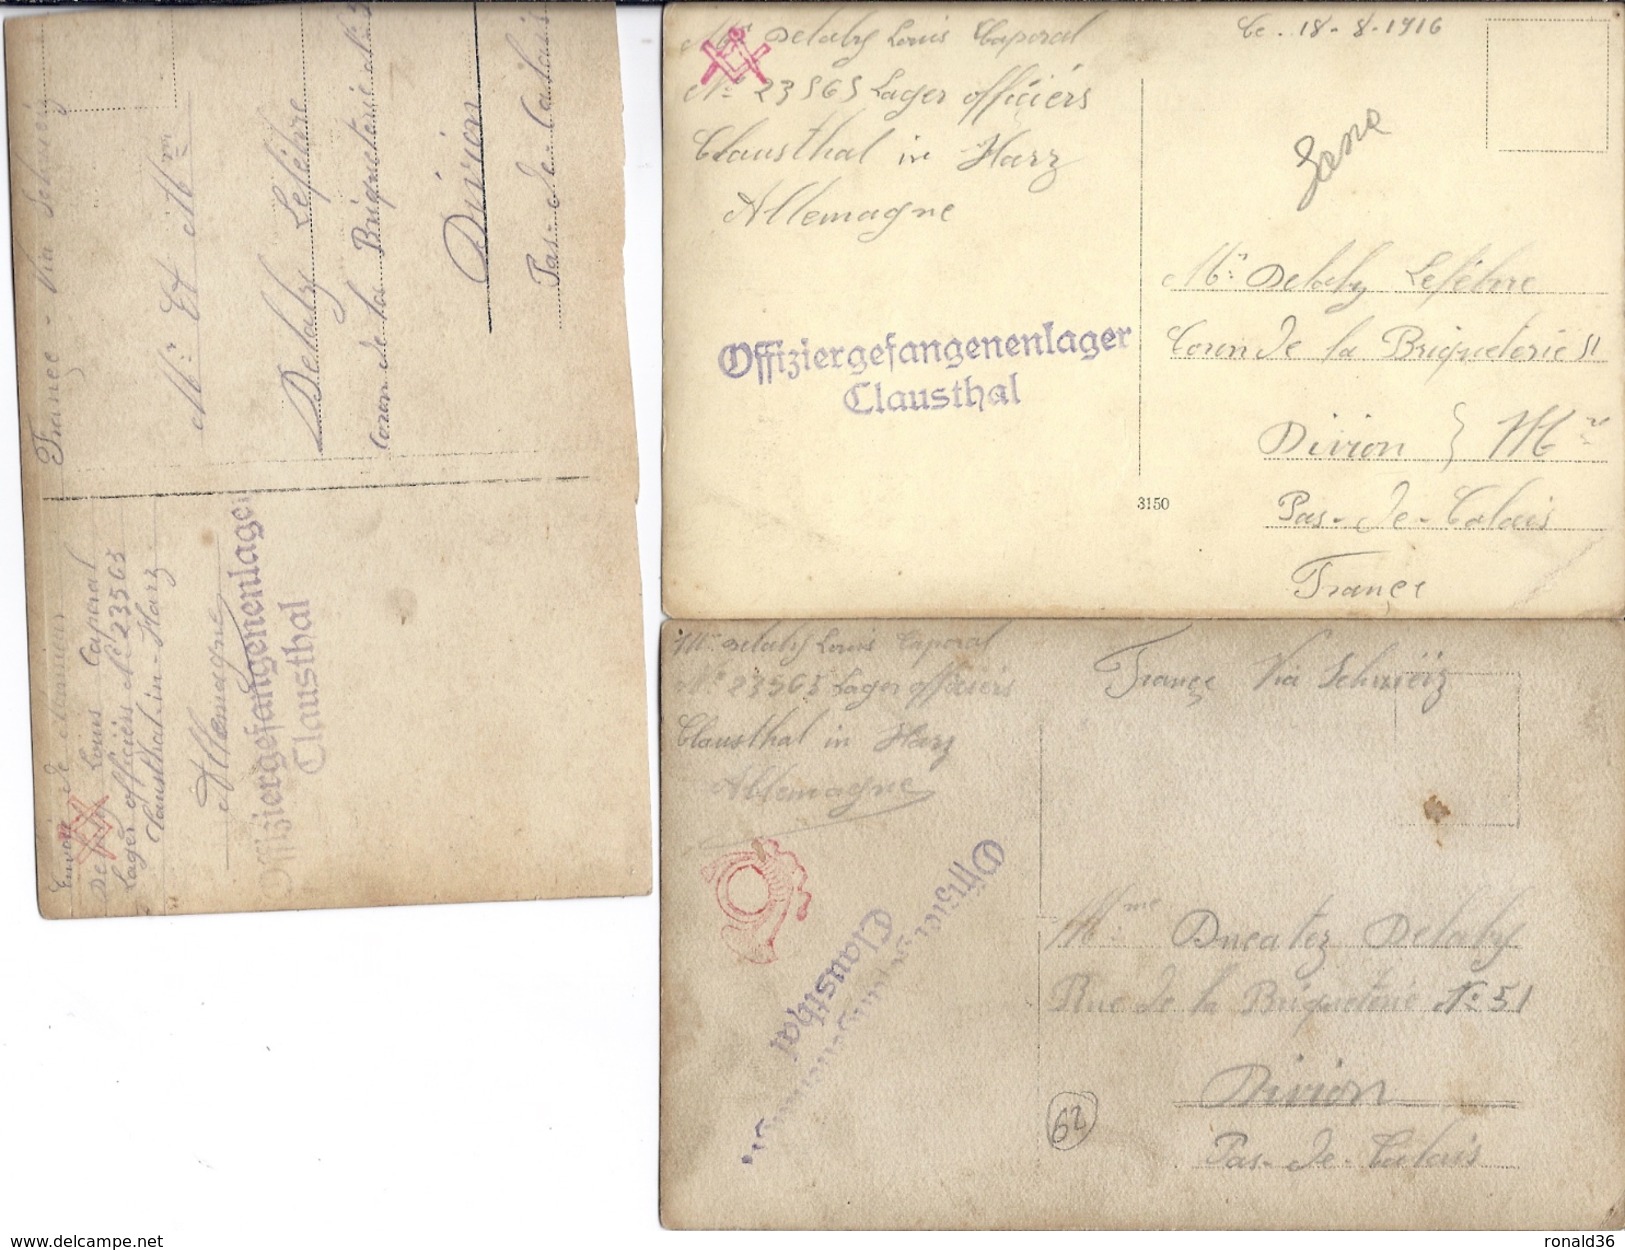 France - Via Schweiz
Mr Et Mme
Delaby Lefébre
Coron de la Briqueterie N° 5
Divion
Pas-de-Calais
Envoie de
Delaby Louis Caporal
Lager officiers N° 23565
Clausthal-in-Harz
Allemagne
Offiziergefangenenlager
Clausthal
Mr Delaby Louis Caporal
N° 23565 Lager officiers
Clausthal in Harz
Allemagne
Offiziergefangenenlager
Clausthal
3150
Le. 18-8-1916
Mr Delaby Lefébre
Coron de la Briqueterie 51
Divion
Pas-de-Calais
France
Mr Delaby Louis Caporal
N° 23565 Lager officiers
Clausthal in Harz
Allemagne
Clausthal
France Via Schweiz
Mme Ducatez Delaby
Rue de la Briqueterie N° 51
Divion
Pas-de-Calais
62
www.delcampe.net
ronald36